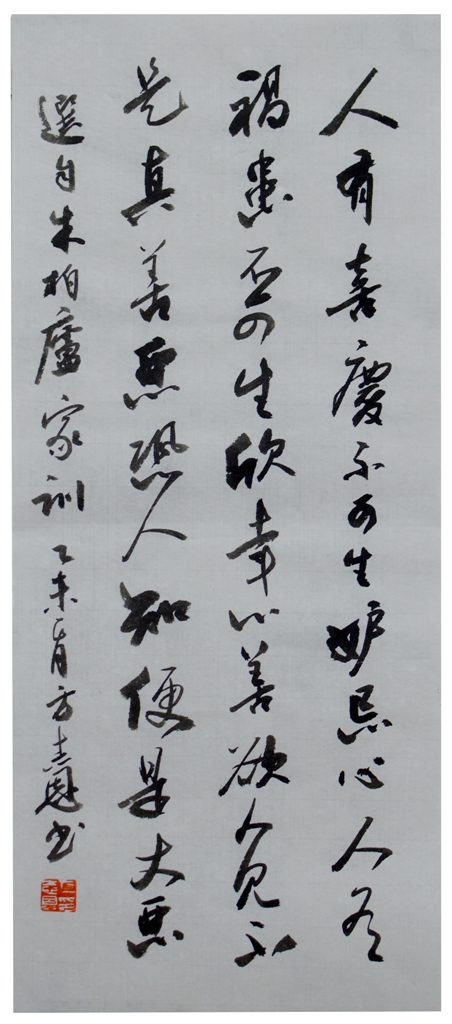 人有喜慶不可生妒忌心人有
禍患不可生欣幸心善欲人見不
是真善惡恐人知便是大惡
選自朱柏廬家訓 乙未春月方志恩書